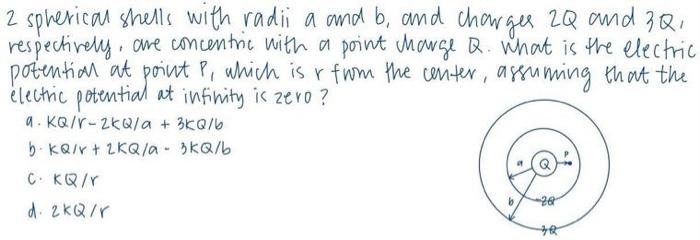 2 spherical shells with radii a and b, and charges 2Q and 3Q,
respectively, are concentric with a point charge Q. What is the electric
potential at point P, which is r from the center, assuming that the
electric potential at infinity is zero?
a. KQ/r - 2KQ/a + 3KQ/b
b. KQ/r + 2KQ/a - 3KQ/b
c. KQ/r
d. 2KQ/r
a Q P
b -2Q
3Q